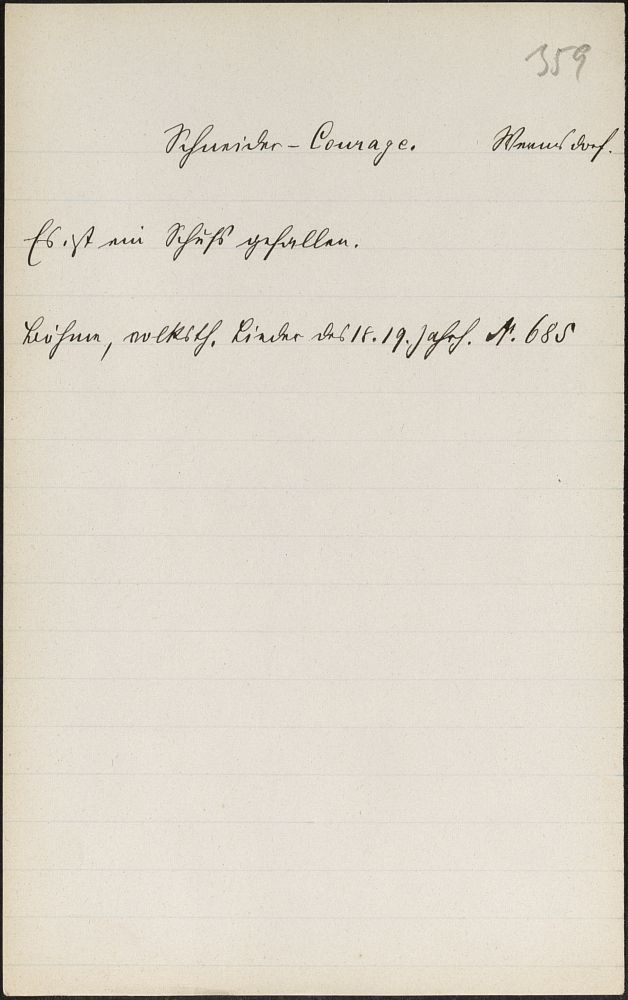 359
Schneider-Courage. Wernsdorf.
Es ist ein Schuß gefallen.
Böhme, volksth. Lieder des 18. 19. Jahrh. N. 685